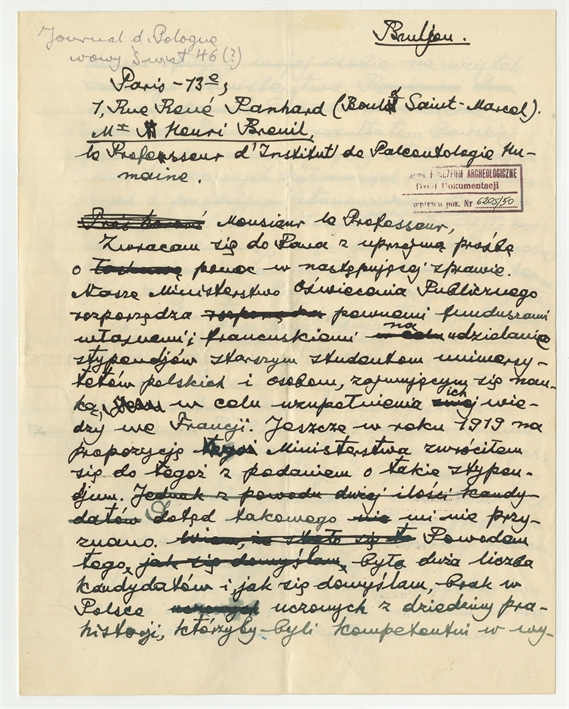 Journal d. Pologne
nowy Świat 46 (?)
Bruljon.
Paris – 13e,
1, Rue René Panhard (Boul Saint-Marcel).
Mr Henri Breuil,
le Professeur d'Institut de Paleontologie Hu-
maine.
ARCHEOLOGICZNE
Dział Dokumentacji
wpływu poz. Nr 6205/50
Monsieur le Professeur,
Zwracam się do Pana z uprzejmą prośbą
o łaskawą pomoc w następującej sprawie.
Nasze Ministerstwo Oświecenia Publicznego
rozporządza pewnemi funduszami
własnemi i francuskiemi w celu na udzielanie
stypendjów starszym studentom uniwersy-
tetów polskich i osobom, zajmującym się nau-
ką, w celu uzupełnienia swej ich wie-
dzy we Francji. Jeszcze w roku 1919 na
propozycję tegoż Ministerstwa zwróciłem
się do tegoż z podaniem o takie stypen-
djum. Jednak z powodu dużej ilości kandy-
datów Dotąd takowego nie mi nie przy-
znano. Powodem
tego, jak się domyślam, była duża liczba
kandydatów i jak się domyślam, brak w
Polsce uczonych uczonych z dziedziny pra-
historji, którzyby byli kompetentni w wy-